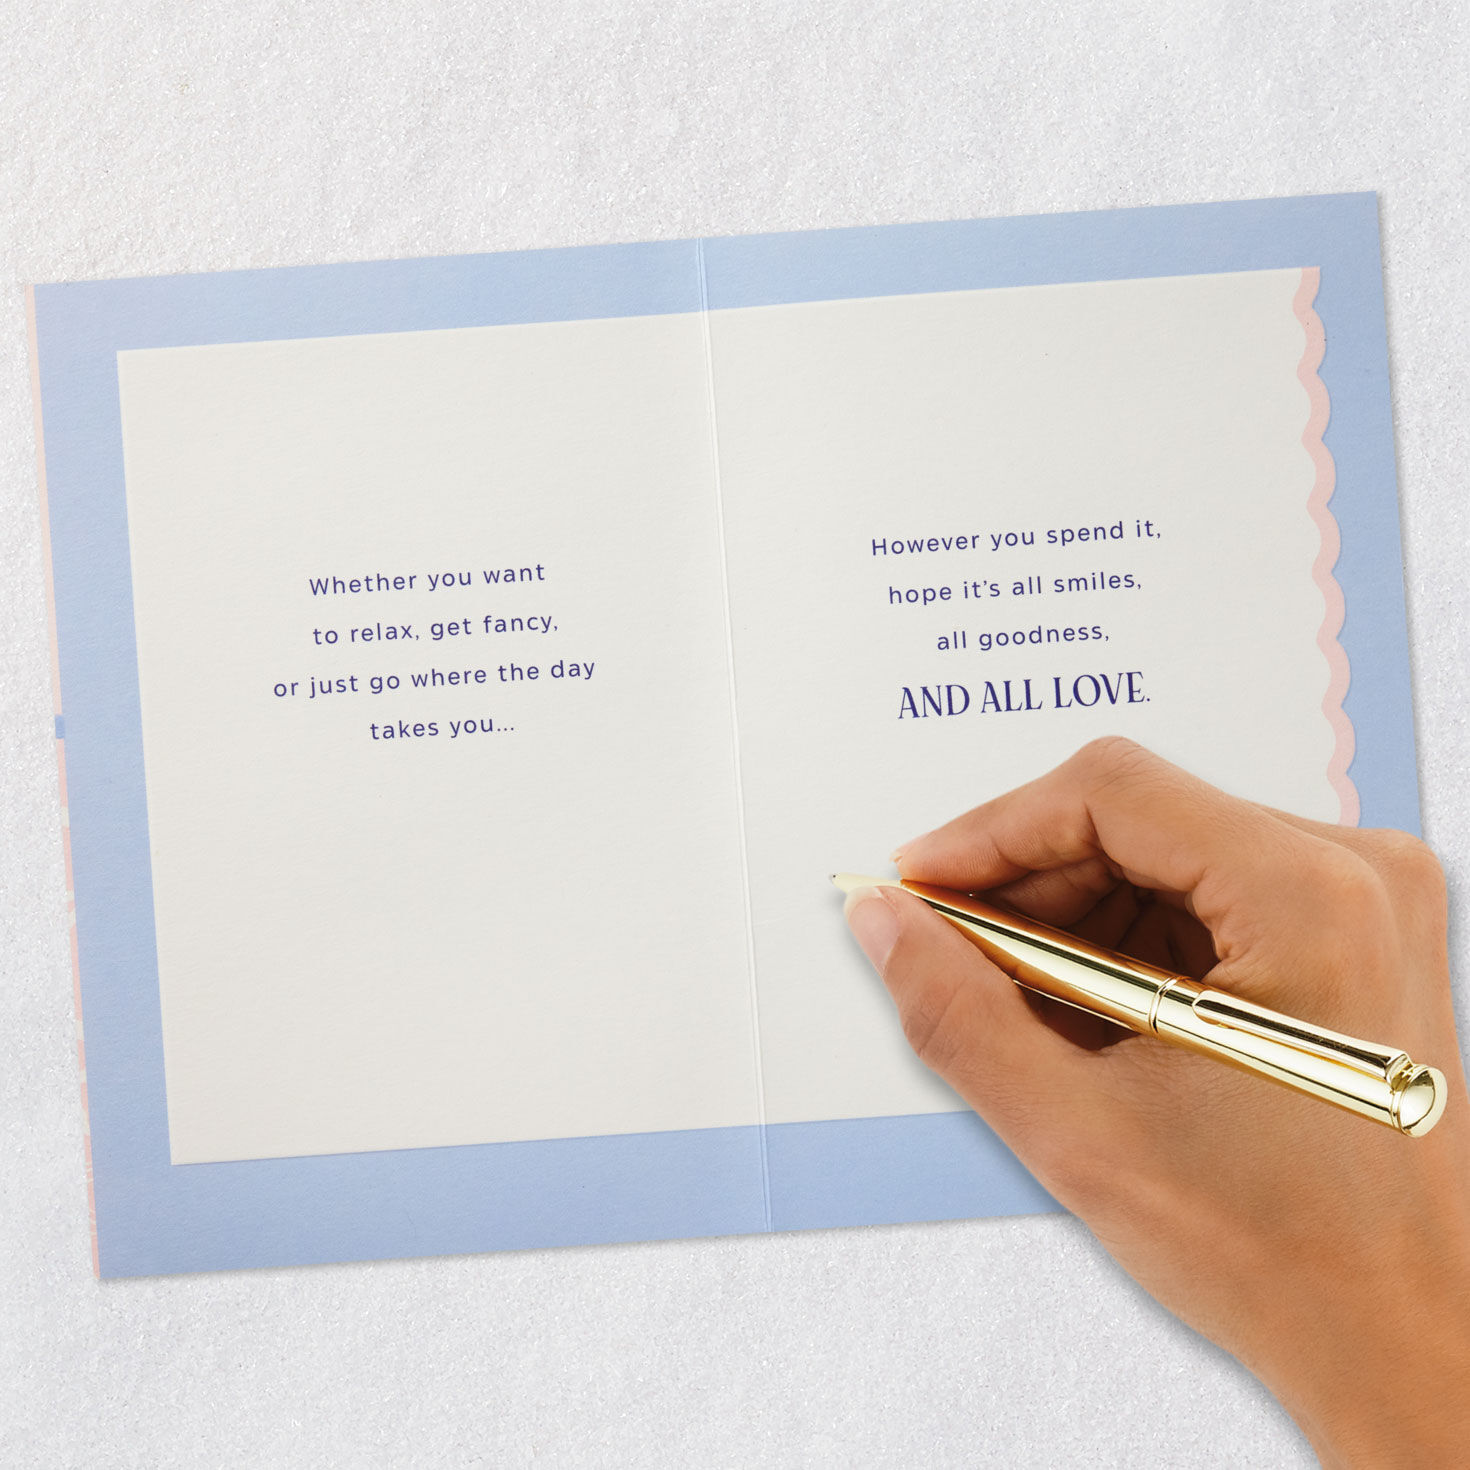 Whether you want
to relax, get fancy,
or just go where the day
takes you...
However you spend it,
hope it’s all smiles,
all goodness,
AND ALL LOVE.